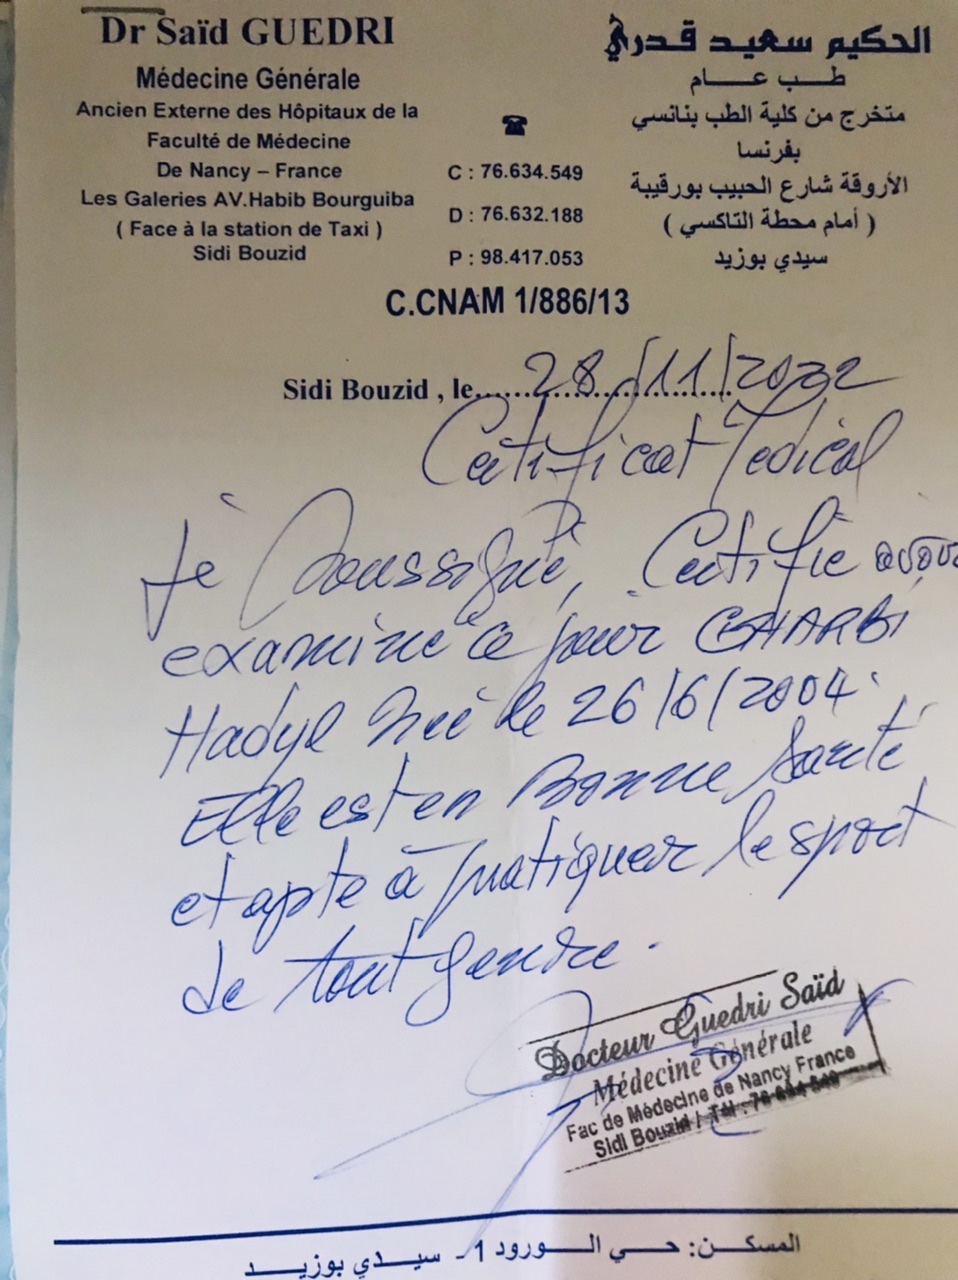 Dr Saïd GUEDRI
Médecine Générale
Ancien Externe des Hôpitaux de la
Faculté de Médecine
De Nancy – France
Les Galeries AV.Habib Bourguiba
( Face à la station de Taxi )
Sidi Bouzid
☎
C : 76.634.549
D : 76.632.188
P : 98.417.053
الحكيم سعيد قدري
طب عام
متخرج من كلية الطب بنانسي
بفرنسا
الأروقة شارع الحبيب بورقيبة
( أمام محطة التاكسي )
سيدي بوزيد
C.CNAM 1/886/13
Sidi Bouzid , le......28/11/2022
Certificat Medical
Je Soussigné, Certifie avoir
examiné ce jour GHARBI
Hadyl Née le 26/6/2004.
Elle est en Bonne Santé
et apte à pratiquer le sport
de tout genre.
Docteur Guedri Saïd
Médecine Générale
Fac de Médecine de Nancy France
Sidi Bouzid / Tél : 76 634 549
المسكن: حي الورود 1 - سيدي بوزيد